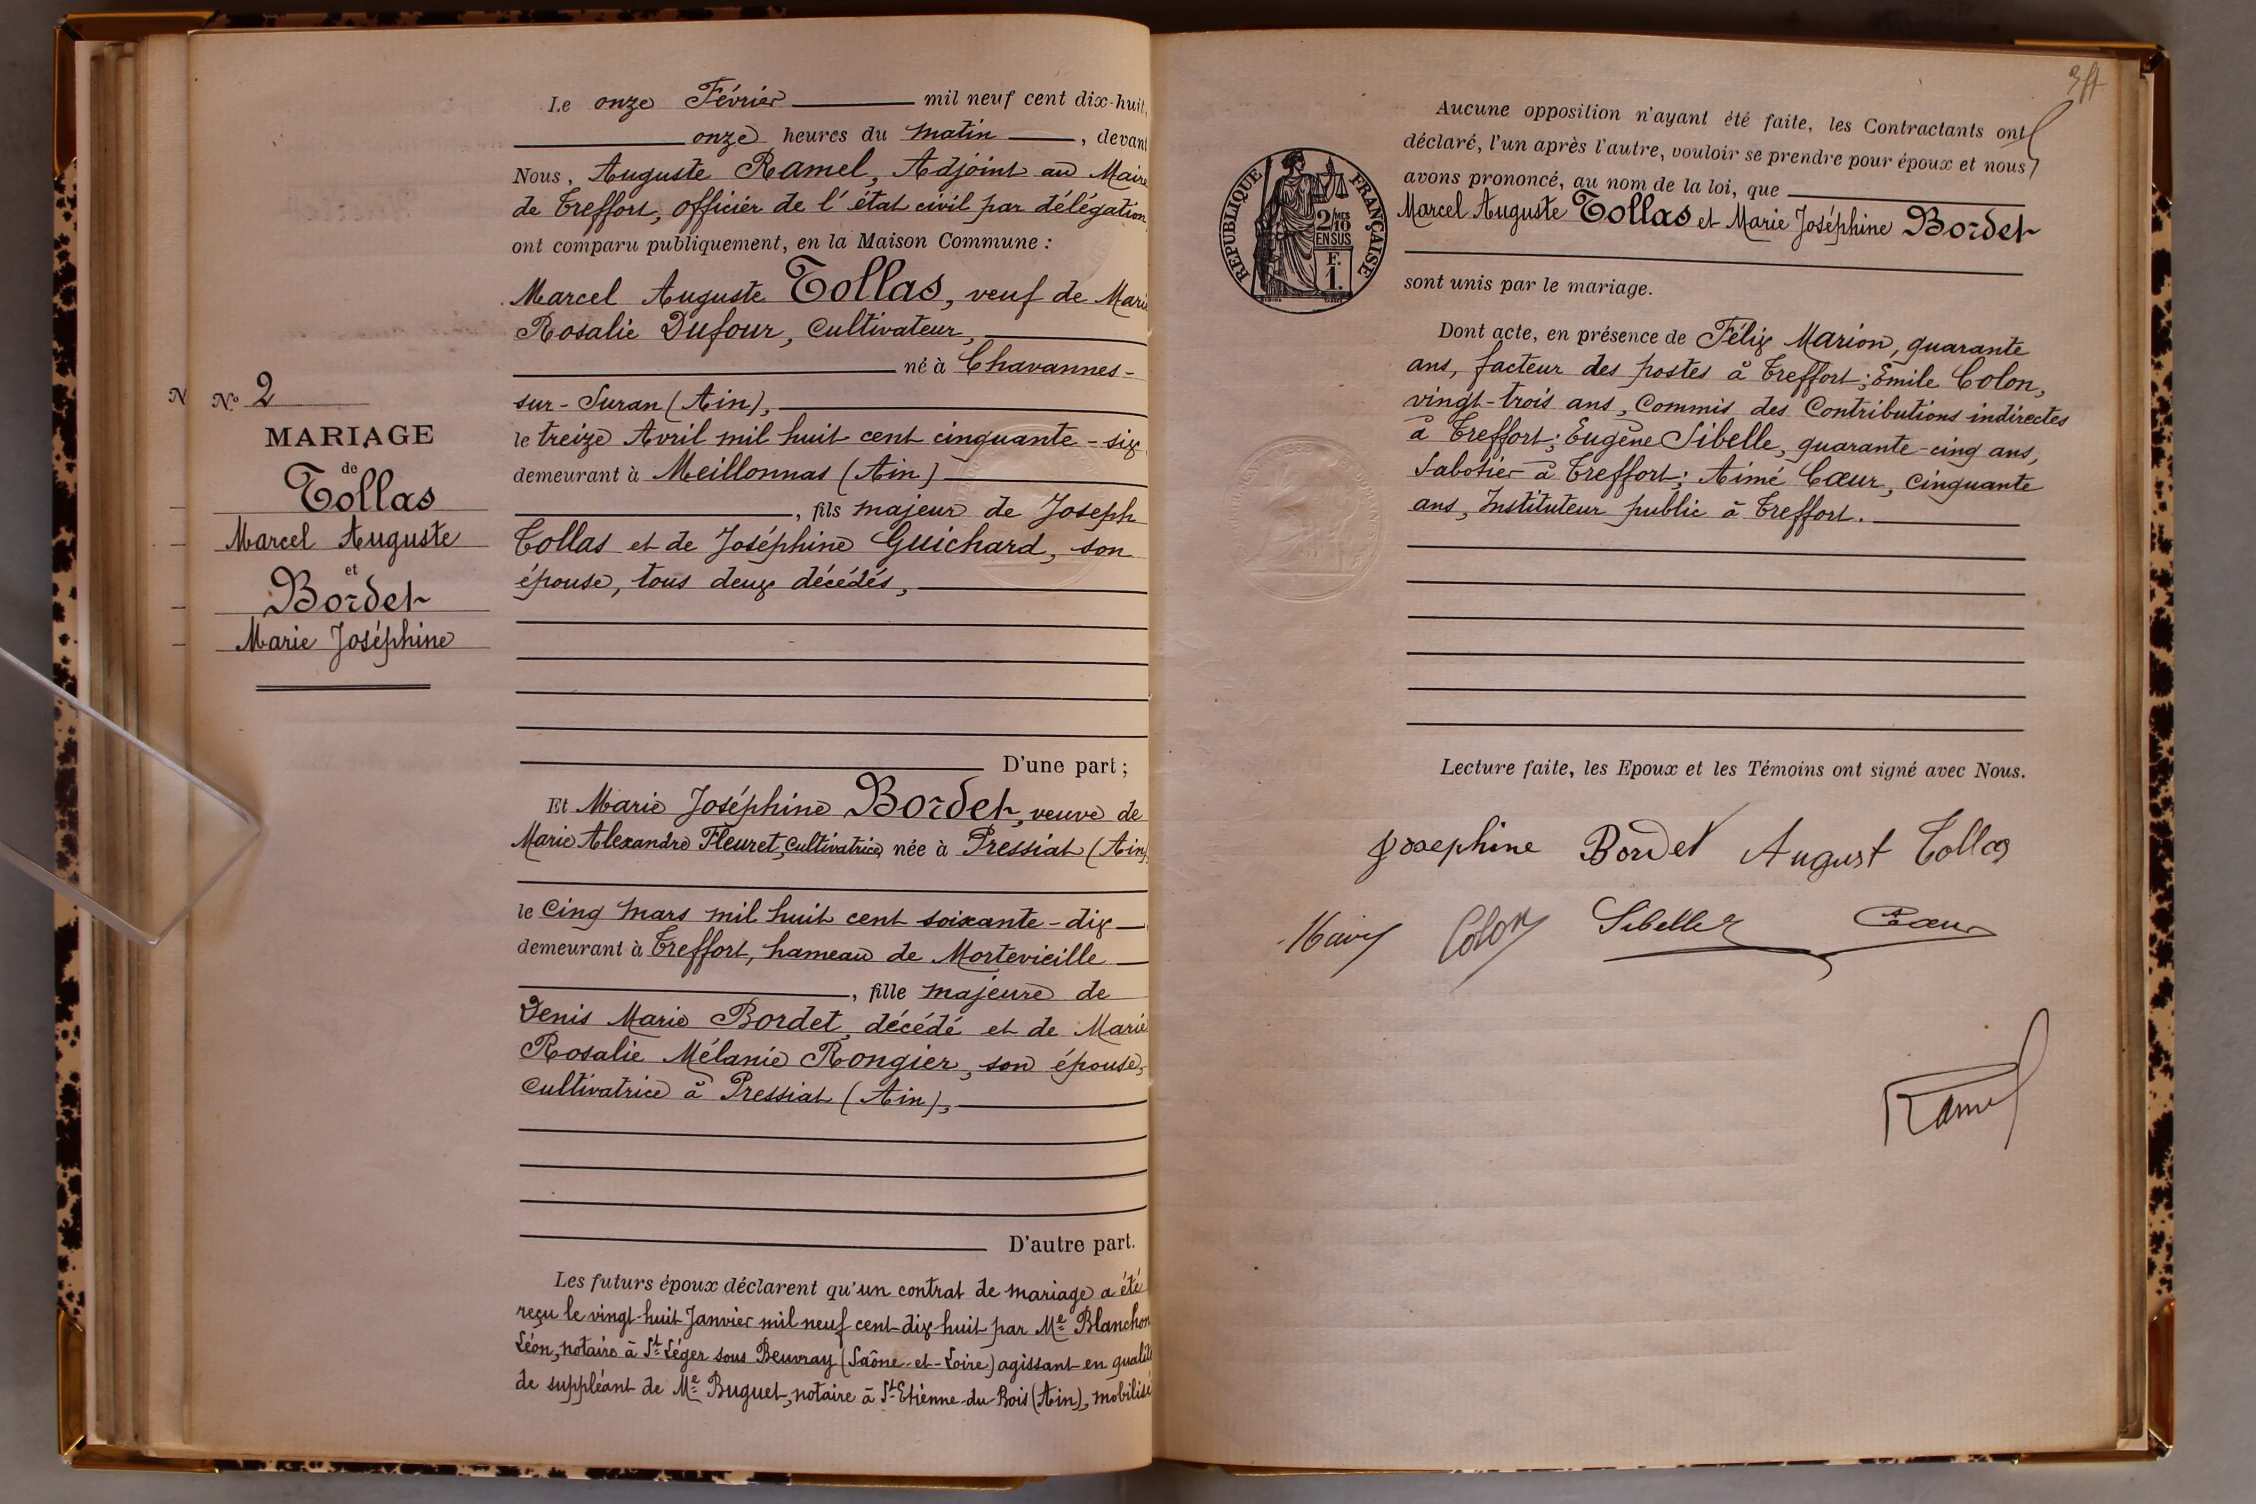 N
Nº 2
MARIAGE
de
Tollas
Marcel Auguste
et
Bordet
Marie Joséphine
Le onze Février mil neuf cent dix-huit,
onze heures du matin, devant
Nous, Auguste Ramel, Adjoint au Maire
de Treffort, officier de l'état civil par délégation
ont comparu publiquement, en la Maison Commune :
Marcel Auguste Tollas, veuf de Marie
Rosalie Dufour, Cultivateur,
né à Chavannes-
sur-Suran (Ain),
le treize Avril mil huit cent cinquante-six
demeurant à Meillonnas (Ain)
, fils majeur de Joseph
Tollas et de Joséphine Guichard, son
épouse, tous deux décédés,
D'une part ;
Et Marie Joséphine Bordet, veuve de
Marie Alexandre Fleuret, Cultivatrice, née à Pressiat (Ain),
le Cinq mars mil huit cent soixante-dix
demeurant à Treffort, hameau de Mortevieille
, fille majeure de
Denis Marie Bordet, décédé et de Marie
Rosalie Mélanie Rongier, son épouse,
Cultivatrice à Pressiat (Ain),
D'autre part.
Les futurs époux déclarent qu'un contrat de mariage a été
reçu le vingt-huit Janvier mil neuf cent-dix-huit par Me Blanchon
Léon, notaire à St Léger sous Beuvray (Saône-et-Loire) agissant en qualité
de suppléant de Me Buguet, notaire à St Etienne-du-Bois (Ain), mobilisé
Aucune opposition n'ayant été faite, les Contractants ont
déclaré, l'un après l'autre, vouloir se prendre pour époux et nous
avons prononcé, au nom de la loi, que
Marcel Auguste Tollas et Marie Joséphine Bordet
sont unis par le mariage.
RÉPUBLIQUE FRANÇAISE
2/10 MES
EN SUS
F.
1.
Dont acte, en présence de Félix Marion, quarante
ans, facteur des postes à Treffort ; Emile Colon,
vingt-trois ans, Commis des Contributions indirectes
à Treffort ; Eugène Sibelle, quarante-cinq ans,
Sabotier à Treffort ; Aimé Cœur, Cinquante
ans, Instituteur public à Treffort.
Lecture faite, les Epoux et les Témoins ont signé avec Nous.
Josephine Bordet August Tollas
Colon Sibelle Cœur
Ramel